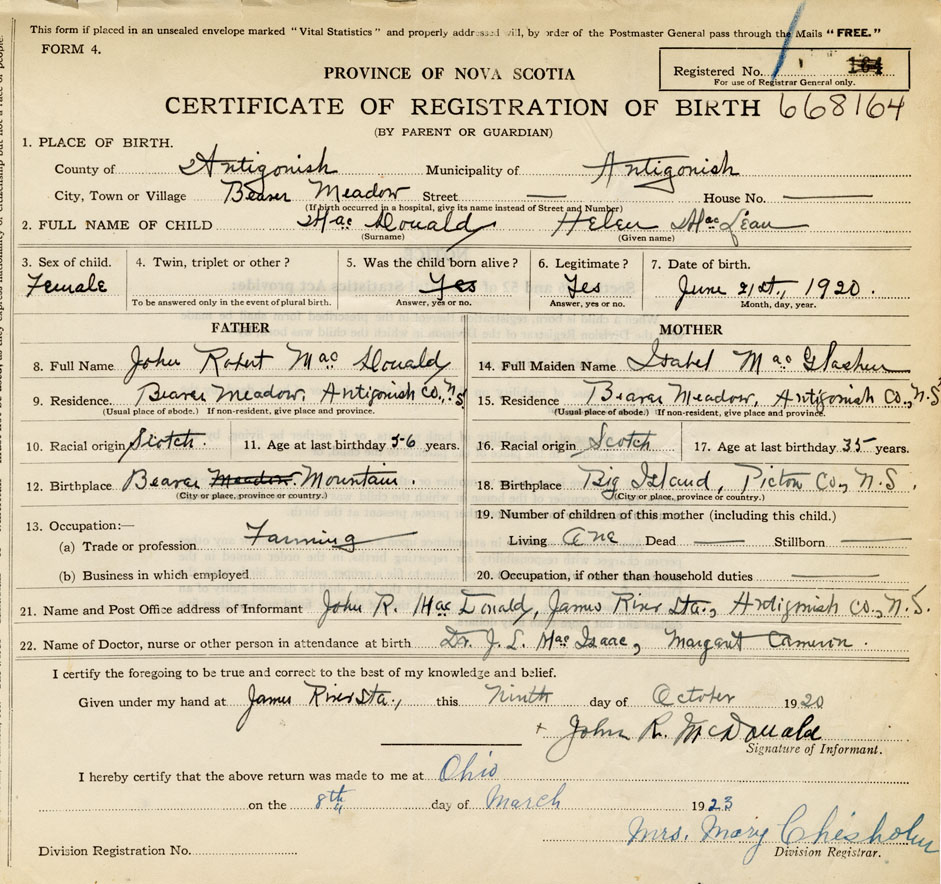 This form if placed in an unsealed envelope marked "Vital Statistics" and properly addressed will, by order of the Postmaster General pass through the Mails "FREE."
FORM 4.
Registered No. 164
For use of Registrar General only.
PROVINCE OF NOVA SCOTIA
CERTIFICATE OF REGISTRATION OF BIRTH 668164
(BY PARENT OR GUARDIAN)
1. PLACE OF BIRTH.
County of Antigonish Municipality of Antigonish
City, Town or Village Beaver Meadow Street House No.
(If birth occurred in a hospital, give its name instead of Street and Number)
2. FULL NAME OF CHILD MacDonald Helen MacLean
(Surname) (Given name)
3. Sex of child. 4. Twin, triplet or other? 5. Was the child born alive? 6. Legitimate? 7. Date of birth.
Female Yes Yes June 21st, 1920.
To be answered only in the event of plural birth. Answer, yes or no. Answer, yes or no. Month, day, year.
FATHER
8. Full Name John Robert MacDonald
9. Residence. Beaver Meadow, Antigonish Co., N.S
(Usual place of abode.) If non-resident, give place and province.
10. Racial origin Scotch. 11. Age at last birthday 56 years.
12. Birthplace Beaver Meadow Mountain.
(City or place, province or country.)
13. Occupation:—
(a) Trade or profession Farming
(b) Business in which employed
MOTHER
14. Full Maiden Name Isabel MacGlashen
15. Residence Beaver Meadow, Antigonish Co., N.S
(Usual place of abode.) If non-resident, give place and province.
16. Racial origin Scotch 17. Age at last birthday 35 years.
18. Birthplace Big Island, Pictou Co., N.S.
(City or place, province or country.)
19. Number of children of this mother (including this child.)
Living One Dead Stillborn
20. Occupation, if other than household duties
21. Name and Post Office address of Informant John R. MacDonald, James River Sta., Antigonish Co., N.S.
22. Name of Doctor, nurse or other person in attendance at birth Dr. J. L. MacIsaac, Margaret Cameron.
I certify the foregoing to be true and correct to the best of my knowledge and belief.
Given under my hand at James River Sta., this Ninth day of October 1920
+ John R. McDonald
Signature of Informant.
I hereby certify that the above return was made to me at Ohio
on the 8th day of March 1923
Mrs. Mary Chisholm
Division Registrar.
Division Registration No.